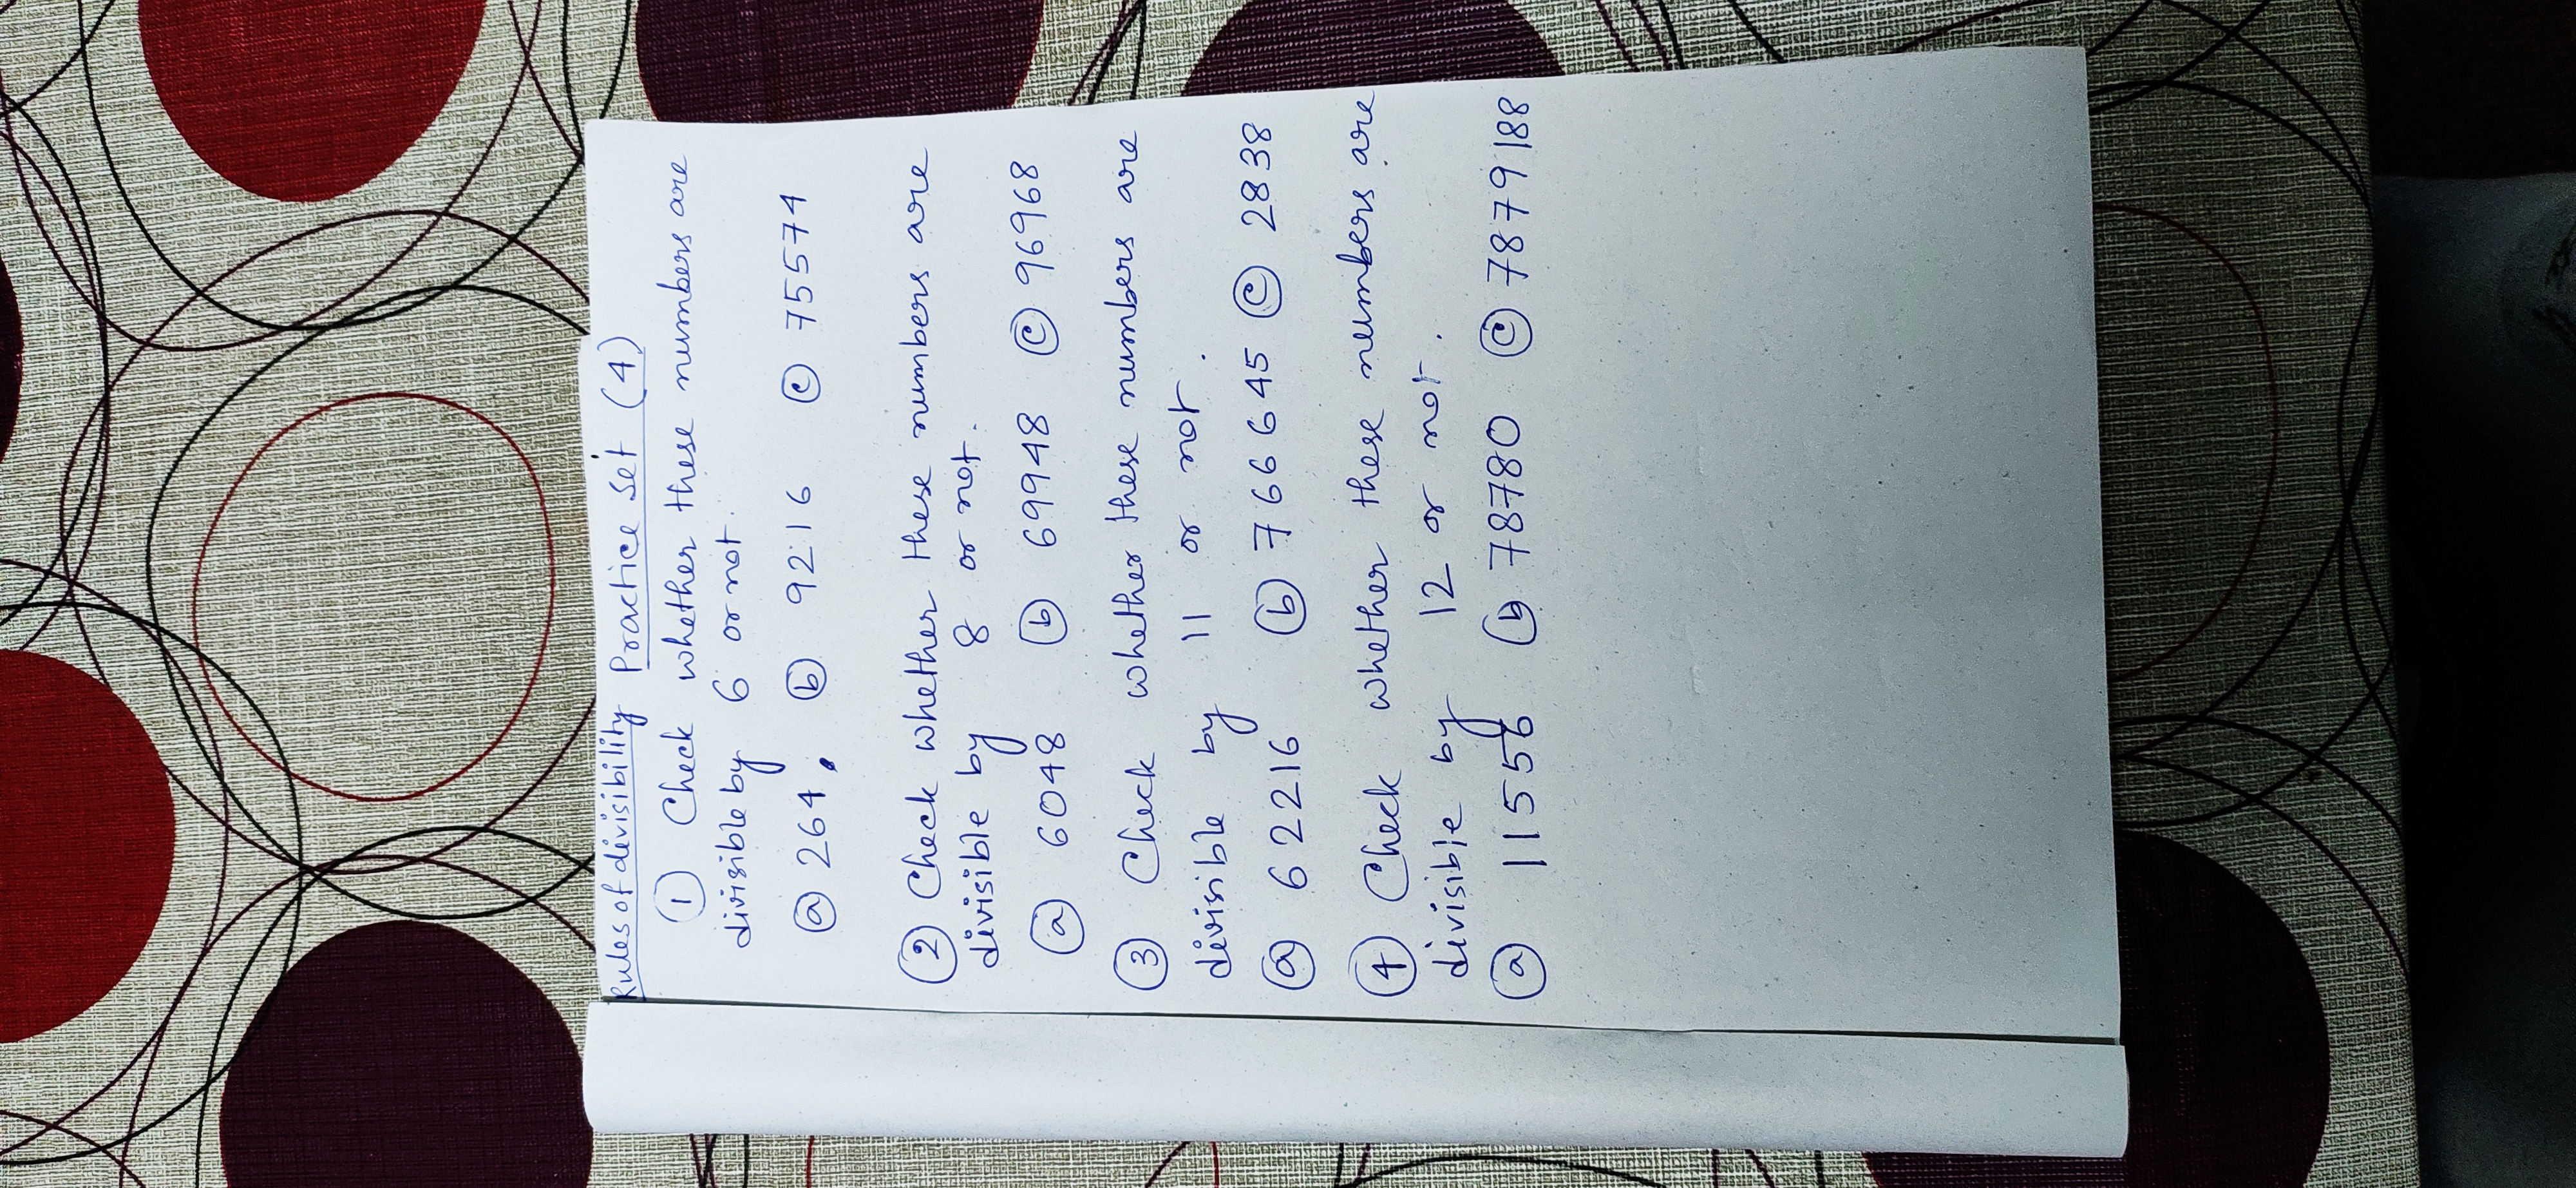 Rules of divisibility Practice Set (4)
① Check whether these numbers are
divisible by 6 or not.
ⓐ 264, ⓑ 9216 ⓒ 75574
② Check whether these numbers are
divisible by 8 or not.
ⓐ 6048 ⓑ 69948 ⓒ 96968
③ Check whether these numbers are
divisible by 11 or not.
ⓐ 62216 ⓑ 766645 ⓒ 2838
④ Check whether these numbers are
divisible by 12 or not.
ⓐ 11556 ⓑ 78780 ⓒ 7879188